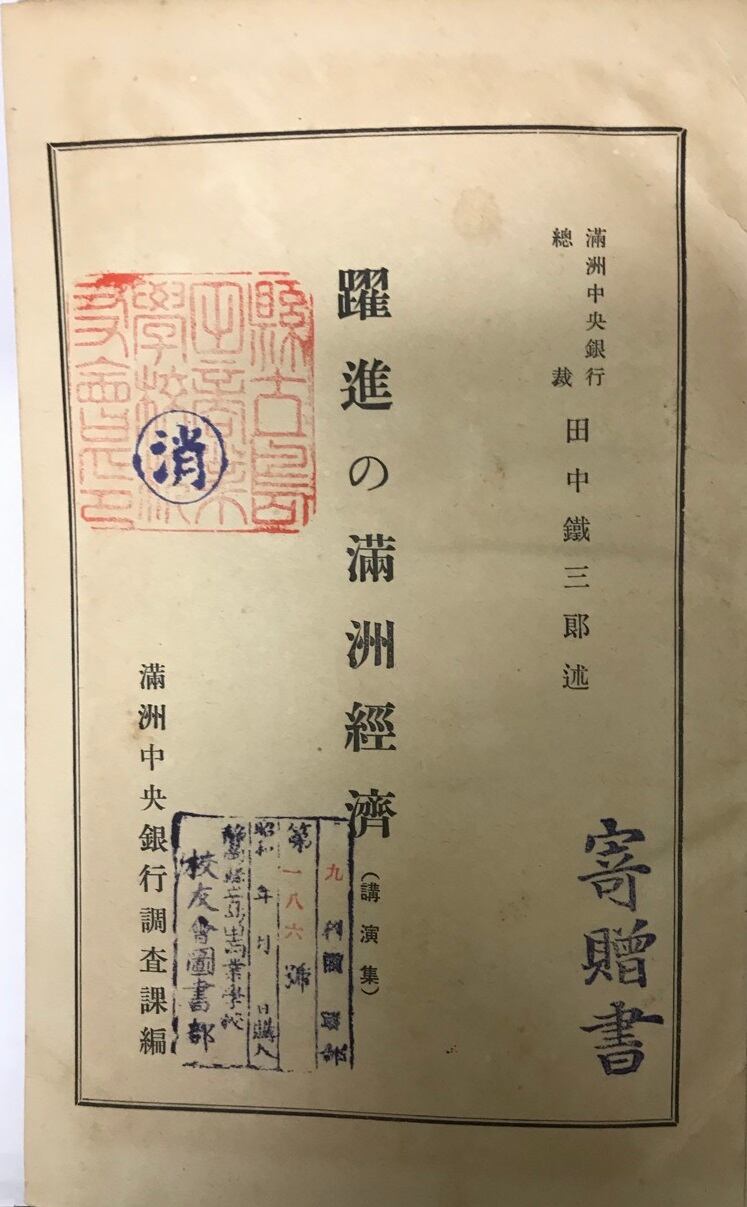 滿洲中央銀行
總裁
田中鐵三郎述
躍進の滿洲經濟
(講演集)
滿洲中央銀行調査課編
寄贈書
消
九
部
第一八六號
昭和 年 月 日購入
商業學校
校友會圖書部